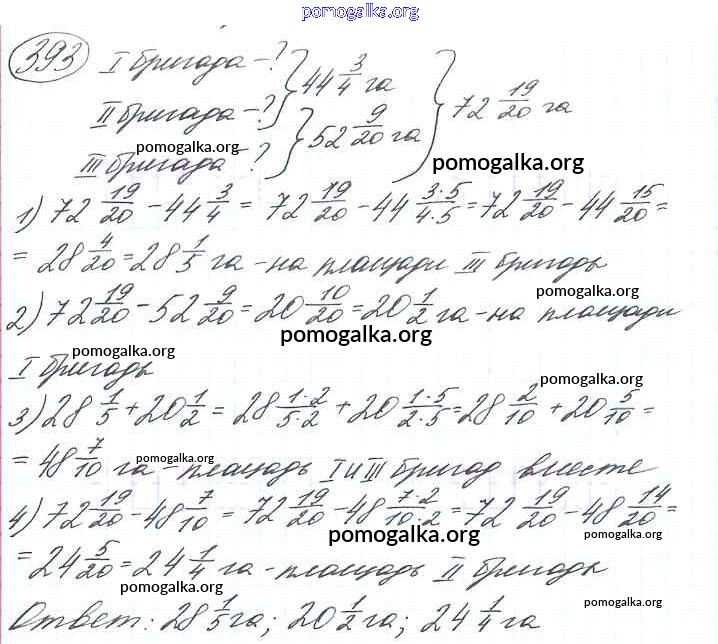 pomogalka.org
393 I бригада - ? } 44 3/4 га } 72 19/20 га
II бригада - ? } 52 9/20 га
pomogalka.org
III бригада - ?
pomogalka.org
1) 72 19/20 - 44 3/4 = 72 19/20 - 44 3·5/4·5 = 72 19/20 - 44 15/20 =
= 28 4/20 = 28 1/5 га - на площади III бригады
pomogalka.org
2) 72 19/20 - 52 9/20 = 20 10/20 = 20 1/2 га - на площади
pomogalka.org
pomogalka.org
I бригады
pomogalka.org
3) 28 1/5 + 20 1/2 = 28 1·2/5·2 + 20 1·5/2·5 = 28 2/10 + 20 5/10 =
pomogalka.org
= 48 7/10 га - площадь I и III бригад вместе
4) 72 19/20 - 48 7/10 = 72 19/20 - 48 7·2/10·2 = 72 19/20 - 48 14/20 =
pomogalka.org
pomogalka.org
= 24 5/20 = 24 1/4 га - площадь II бригады
pomogalka.org
pomogalka.org
Ответ: 28 1/5 га; 20 1/2 га; 24 1/4 га